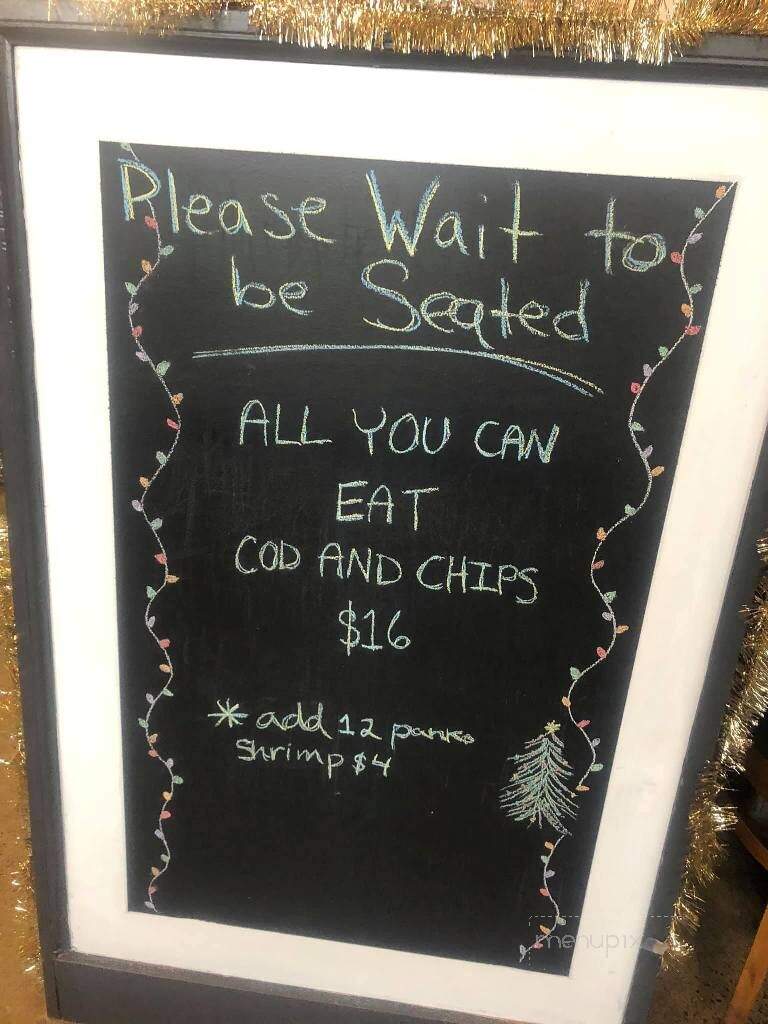 Please Wait to
be Seated
ALL YOU CAN
EAT
COD AND CHIPS
$16
* add 12 panko
Shrimp $4
menupix